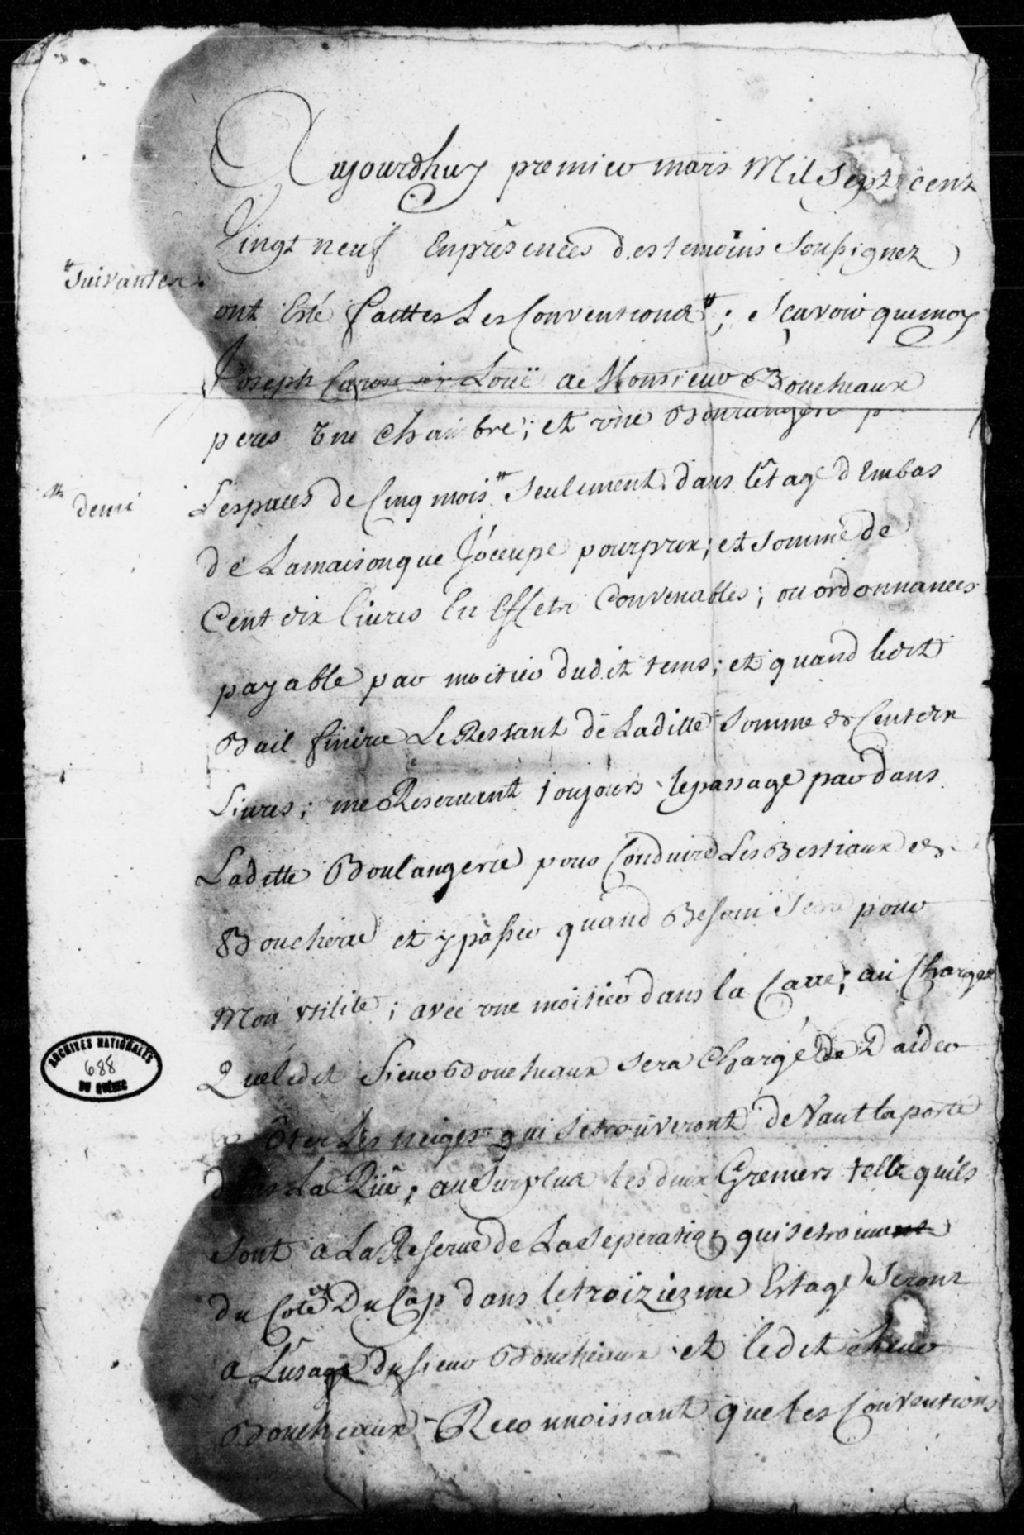 Aujourdhuy premier mars Mil sept cent
Vingt neuf En présences des temoins Soussignez
# suivantes
ont Esté faittes Les Conventions #; sçavoir que moy
Joseph Caron ay Loüé a Monsieur Boucheaux
peres une chambre; et une Boulangerie p
L'espaces de Cinq mois # seulement dans l'étage d'Embas
demi
de La maison que J'ocupe pour prix; et somme de
Cent dix livres En Effets Convenables; ou ordonnances
payable par moitiér dudit tems; et quand ledit
Bail finira Le Restant de Laditte somme de Cent dix
Livres; me Réservant toujours le passage par dans
Laditte Boulangerie pour Conduire Les Bestiaux de
Boucherie et y passer quand Besoin sera pour
Mon utilité; avec une moitiér dans la Cave; au Charges
Que ledit Sieur Boucheaux sera Chargé de D'aider
a Oter Les neiges qui se trouveront de Vant la porte
dans La Rüe; au surplus les deux Greniers telle quils
sont a La Reserve de La Seperation qui se trouvent
du Coté Du Cap dans le troizieme Estage seront
a L'usage du sieur Boucheaux et ledit sieur
Boucheaux Reconnoissant que les Conventions
ARCHIVES NATIONALES
688
DU QUÉBEC